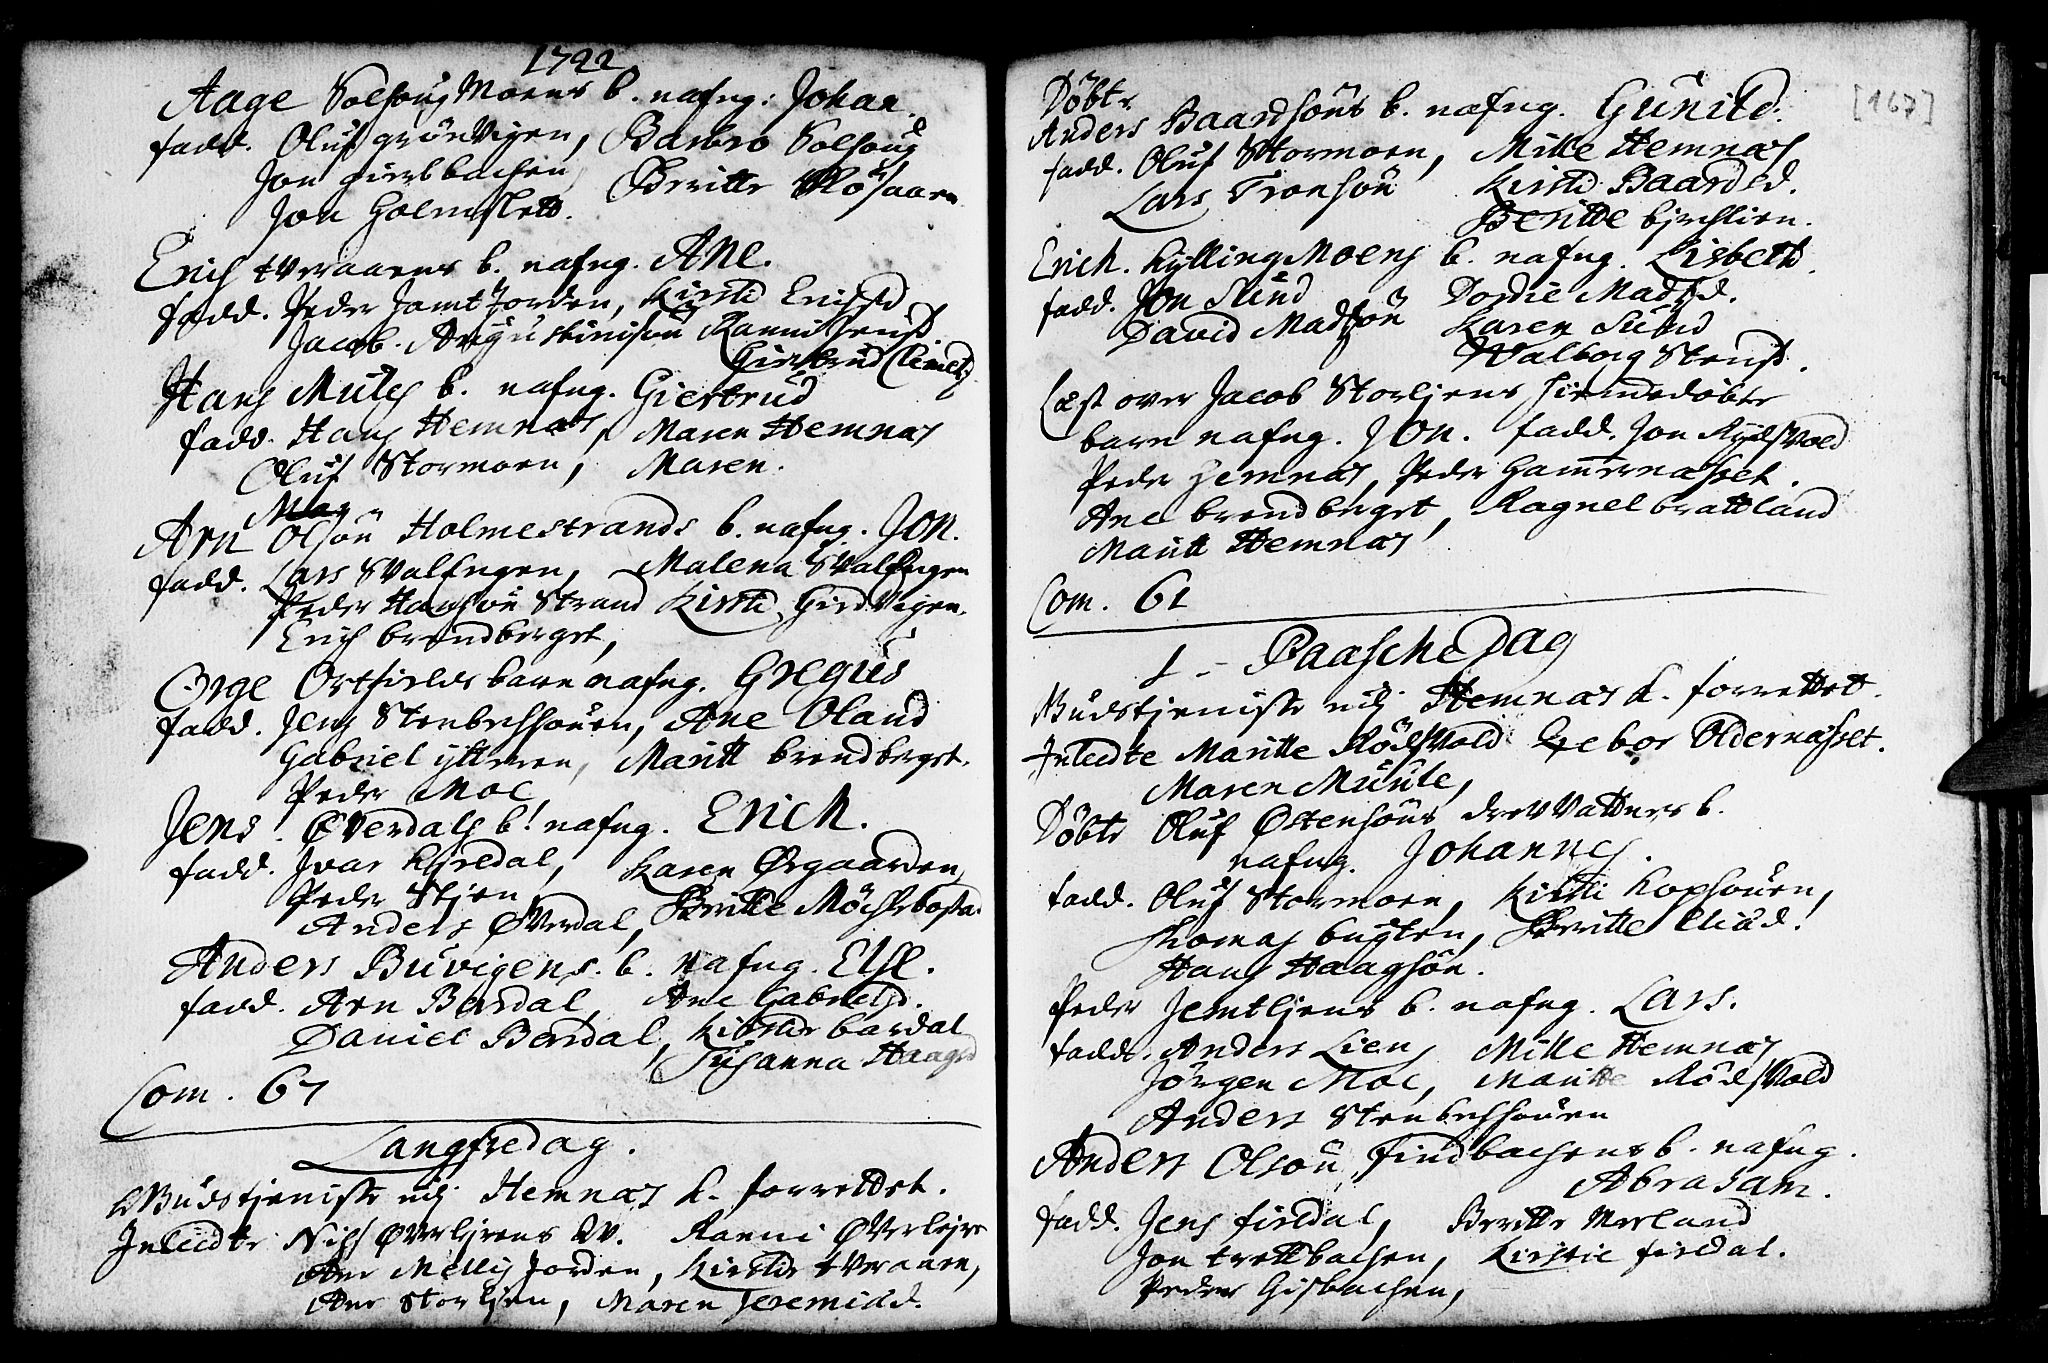 1722
Aage Solhoug Moens b. nafng: Johan.
fadd. Oluf grönvigen, Barbro Solhoug
Jon bachen, Beritte Rösaaen
Jon Holmslett.
Erich tveraaens b. nafng. Ane.
fadd. Peder Jamtjorden, Kirsti Erichsd
Jacob Augustinisön Ranni Jensd.
Giertrud Clemets
Hans Mules b. nafng. Giertrud
fadd. Hans Hemnæs, Maren Hemnæs
Oluf Stormoen, Maren.
Arn Olsön Holmestrands b. nafng. Jon.
fadd. Lars Svalengen, Malena Svalengen
Peder Hansön Strand Kirsti Girdvigen.
Erich brendberget,
Örge Ortfields barn nafng. Gregius
fadd. Jens Stenbechhouen, Ane Oland
Gabriel ytteren, Maritt brendberget.
Peder Moe
Jens Överdals b! nafng. Erich.
fadd. Ivar Lyredal, Karen Örgaarden,
Peder Stjen
Anders Överdal, Beritte Möchlebostad
Anders Buvigens b. nafng. Else.
fadd. Arn Berdal, Ane Gabrielsd.
Daniel Berdal, Kirstie bardal
Susanna Haagsd
Com. 67
Langfredag.
Gudstjeniste udj Hemnæs K. forrettet.
Inledte Nils Överlejrens qv. Ranni Överlejre
Ane Mellisjorden, Kirstie tveraaen,
Ane Storljen, Maren Jeremiæd.
[167]
Döbte
Anders Baardsöns b. nafng. Gunild.
fadd. Oluf Stormoen, Mille Hemnæs
Lars Tronsön Kirsti Baardsd.
Beritte bjrchlien.
Erich KyllingMoens b. nafng. Lisbeth.
fadd. Jon Sund Dordie Madsd.
David Madsön Karen Sund
Walborg Stensd.
Læst over Jacob Storljens hiemedöbte
barn nafng. Jon. fadd. Jon Rydsvold
Peder Hemnæs, Peder Hammernæsset.
Ane brendberget, Ragnel brattland
Maritt Hemnæs
Com. 61
1 - Paasche Dag
Gudstjeniste udj Hemnæs K. forrettet.
Inledte Maritte Rödsvold Gebor Oldernæsset.
Maren Muule,
Döbte Oluf Östensöns drevvattnes b.
nafng. Johannes.
fadd. Oluf Stormoen, Kirsti Kophouen,
Thomas bugten, Beritte Eliæd.
Hans Haagsön.
Peder Jemtljens b. nafng. Lars.
fadd. Anders Lien, Mille Hemnæs
Jörgen Moe, Maritte Rödsvold
Anders Stenbechhouen
Anders Olsön, findbachens b. nafng.
Abraham.
fadd. Jens firedal, Beritte Merland
Jon trettbachen, Kirstie firedal.
Peder Gisbachen,